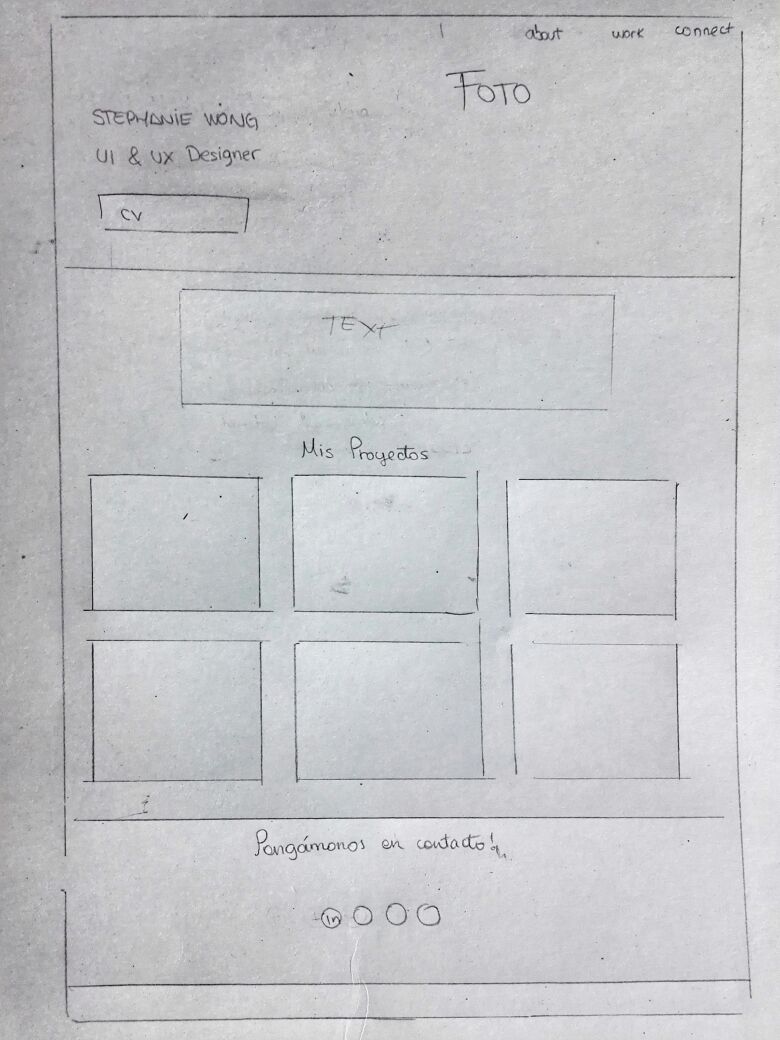 about work connect
FOTO
STEPHANIE WONG
UI & UX Designer
CV
TEXT
Mis Proyectos
Pongámonos en contacto!
in